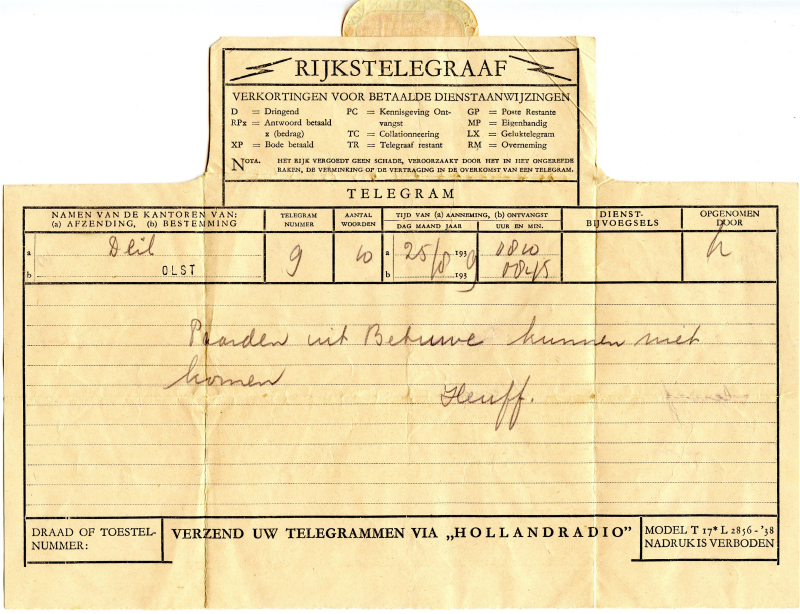 RIJKSTELEGRAAF
VERKORTINGEN VOOR BETAALDE DIENSTAANWIJZINGEN
D = Dringend
RPx = Antwoord betaald
x (bedrag)
XP = Bode betaald
PC = Kennisgeving Ont-
vangst
TC = Collationneering
TR = Telegraaf restant
GP = Poste Restante
MP = Eigenhandig
LX = Geluktelegram
RM = Overneming
NOTA. HET RIJK VERGOEDT GEEN SCHADE, VEROORZAAKT DOOR HET IN HET ONGEREEDE
RAKEN, DE VERMINKING OF DE VERTRAGING IN DE OVERKOMST VAN EEN TELEGRAM.
TELEGRAM
NAMEN VAN DE KANTOREN VAN:
(a) AFZENDING, (b) BESTEMMING
TELEGRAM
NUMMER
AANTAL
WOORDEN
TIJD VAN (a) AANNEMING, (b) ONTVANGST
DAG MAAND JAAR
UUR EN MIN.
DIENST-
BIJVOEGSELS
OPGENOMEN
DOOR
a Deil 9 10 a 25/8 193 9 0810 h
b OLST b 193 0845
Paarden uit Betuwe kunnen niet
komen
Heuff.
DRAAD OF TOESTEL-
NUMMER:
VERZEND UW TELEGRAMMEN VIA „HOLLANDRADIO"
MODEL T 17* L 2856 - '38
NADRUK IS VERBODEN